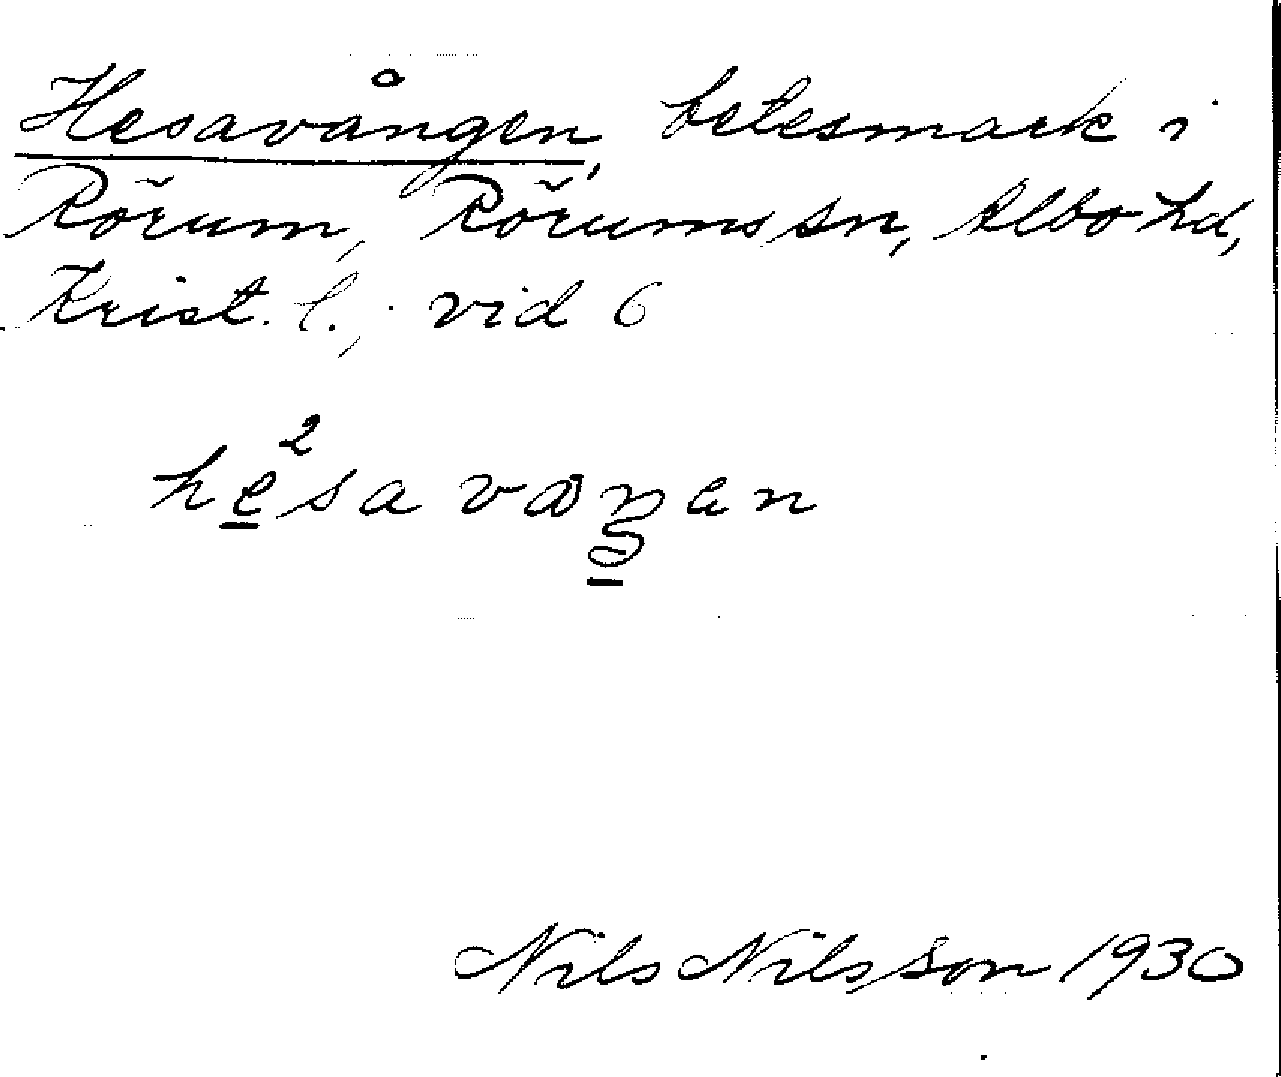 Hesavången, betesmark i
Rörum, Rörums sn, Albo hd,
Krist. l., vid 6
Nils Nilsson 1930